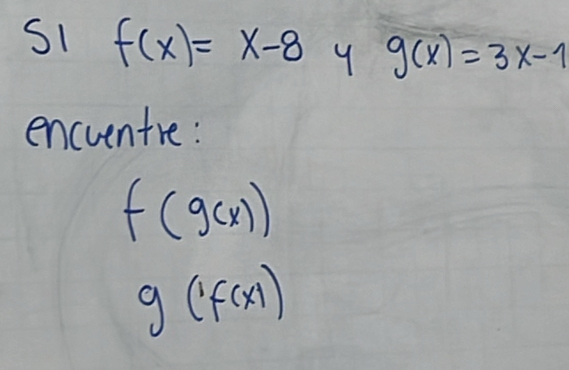 SI f(x)= x-8 y g(x)=3x-1
encuentre:
f(g(x))
g(f(x))